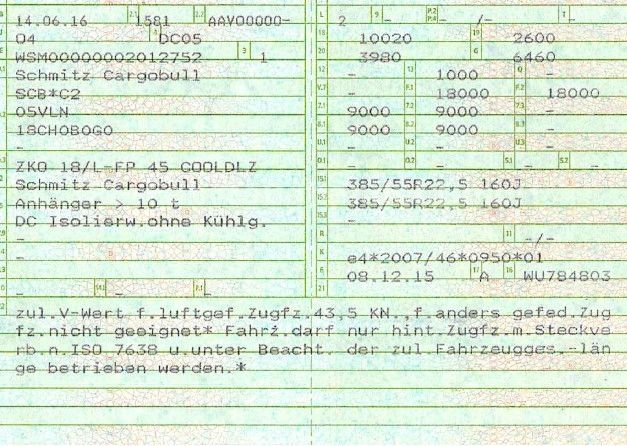 14.06.16 2.1 1581 2.2 AAV00000-
04 DC05
WSM00000002012752 3 1
Schmitz Cargobull
SCB*C2
05VLN
18CHOBOGO
-
ZKO 18/L-FP 45 COOLDLZ
Schmitz Cargobull
Anhänger > 10 t
DC Isolierw.ohne Kühlg.
-
-
-
L 2 9 - P.2 P.4 -/- T -
18 10020 19 2600
20 3980 G 6460
12 - 13 1000 Q -
V.7 - F.1 18000 F.2 18000
7.1 9000 7.2 9000 7.3 -
8.1 9000 8.2 9000 8.3 -
U.1 - U.2 - U.3 -
O.1 - O.2 - S.1 - S.2 -
15.1 385/55R22,5 160J
15.2 385/55R22,5 160J
15.3 -
R - 11 -/-
K e4*2007/46*0950*01
6 08.12.15 17 A 16 WU784803
21
zul.V-Wert f.luftgef.Zugfz.43,5 KN.,f.anders gefed.Zug
fz.nicht geeignet* Fahrz.darf nur hint.Zugfz.m.Steckve
rb.n.ISO 7638 u.unter Beacht. der zul.Fahrzeugges.-län
ge betrieben werden.*